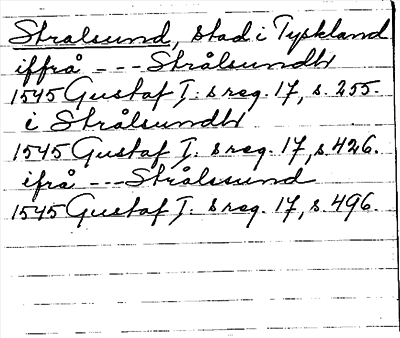 Stralsund, stad i Tyskland
iffrå --- Strålsundh
1545 Gustaf I: s reg. 17, s. 255.
i Strålsundh
1545 Gustaf I: s reg. 17, s. 426.
ifrå --- Strålssund
1545 Gustaf I: s reg. 17, s. 496.